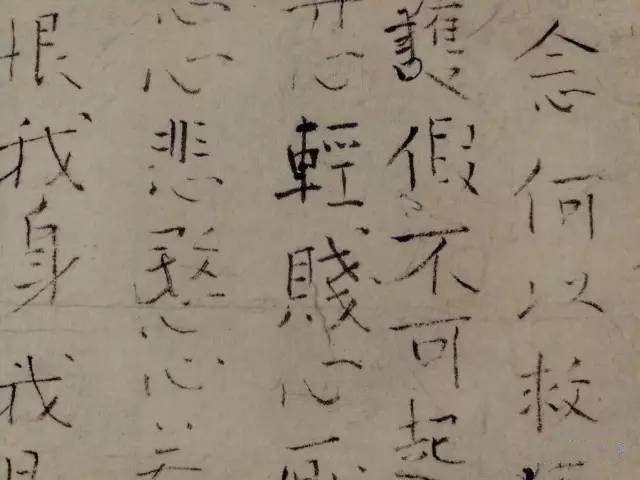 念何以救
護假不可起
心輕賤心
心悲愍心
恨我身我